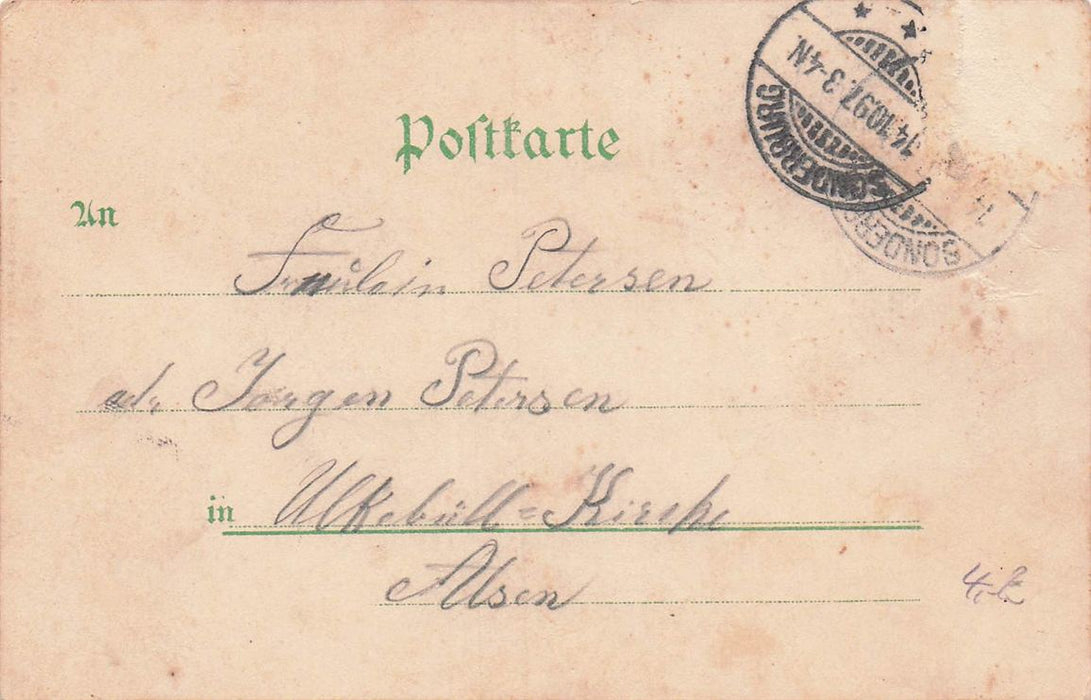 Postkarte
SONDERBURG
14.10.97. 3-4N.
SONDERB
An
Fräulein Petersen
ad. Jørgen Petersen
in Ulkebüll=Kirche
Alsen